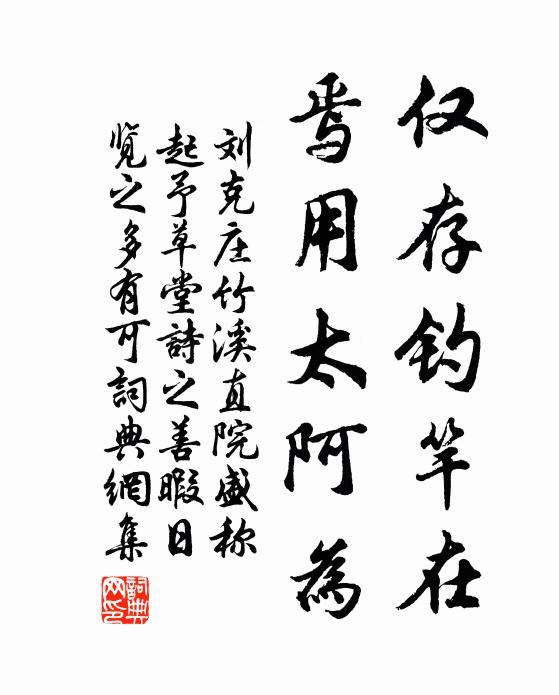 仅存钓竿在
焉用太阿為
刘克庄竹溪直院盛称
起予草堂詩之善暇日
览之多有可詞典網集
詞典網印